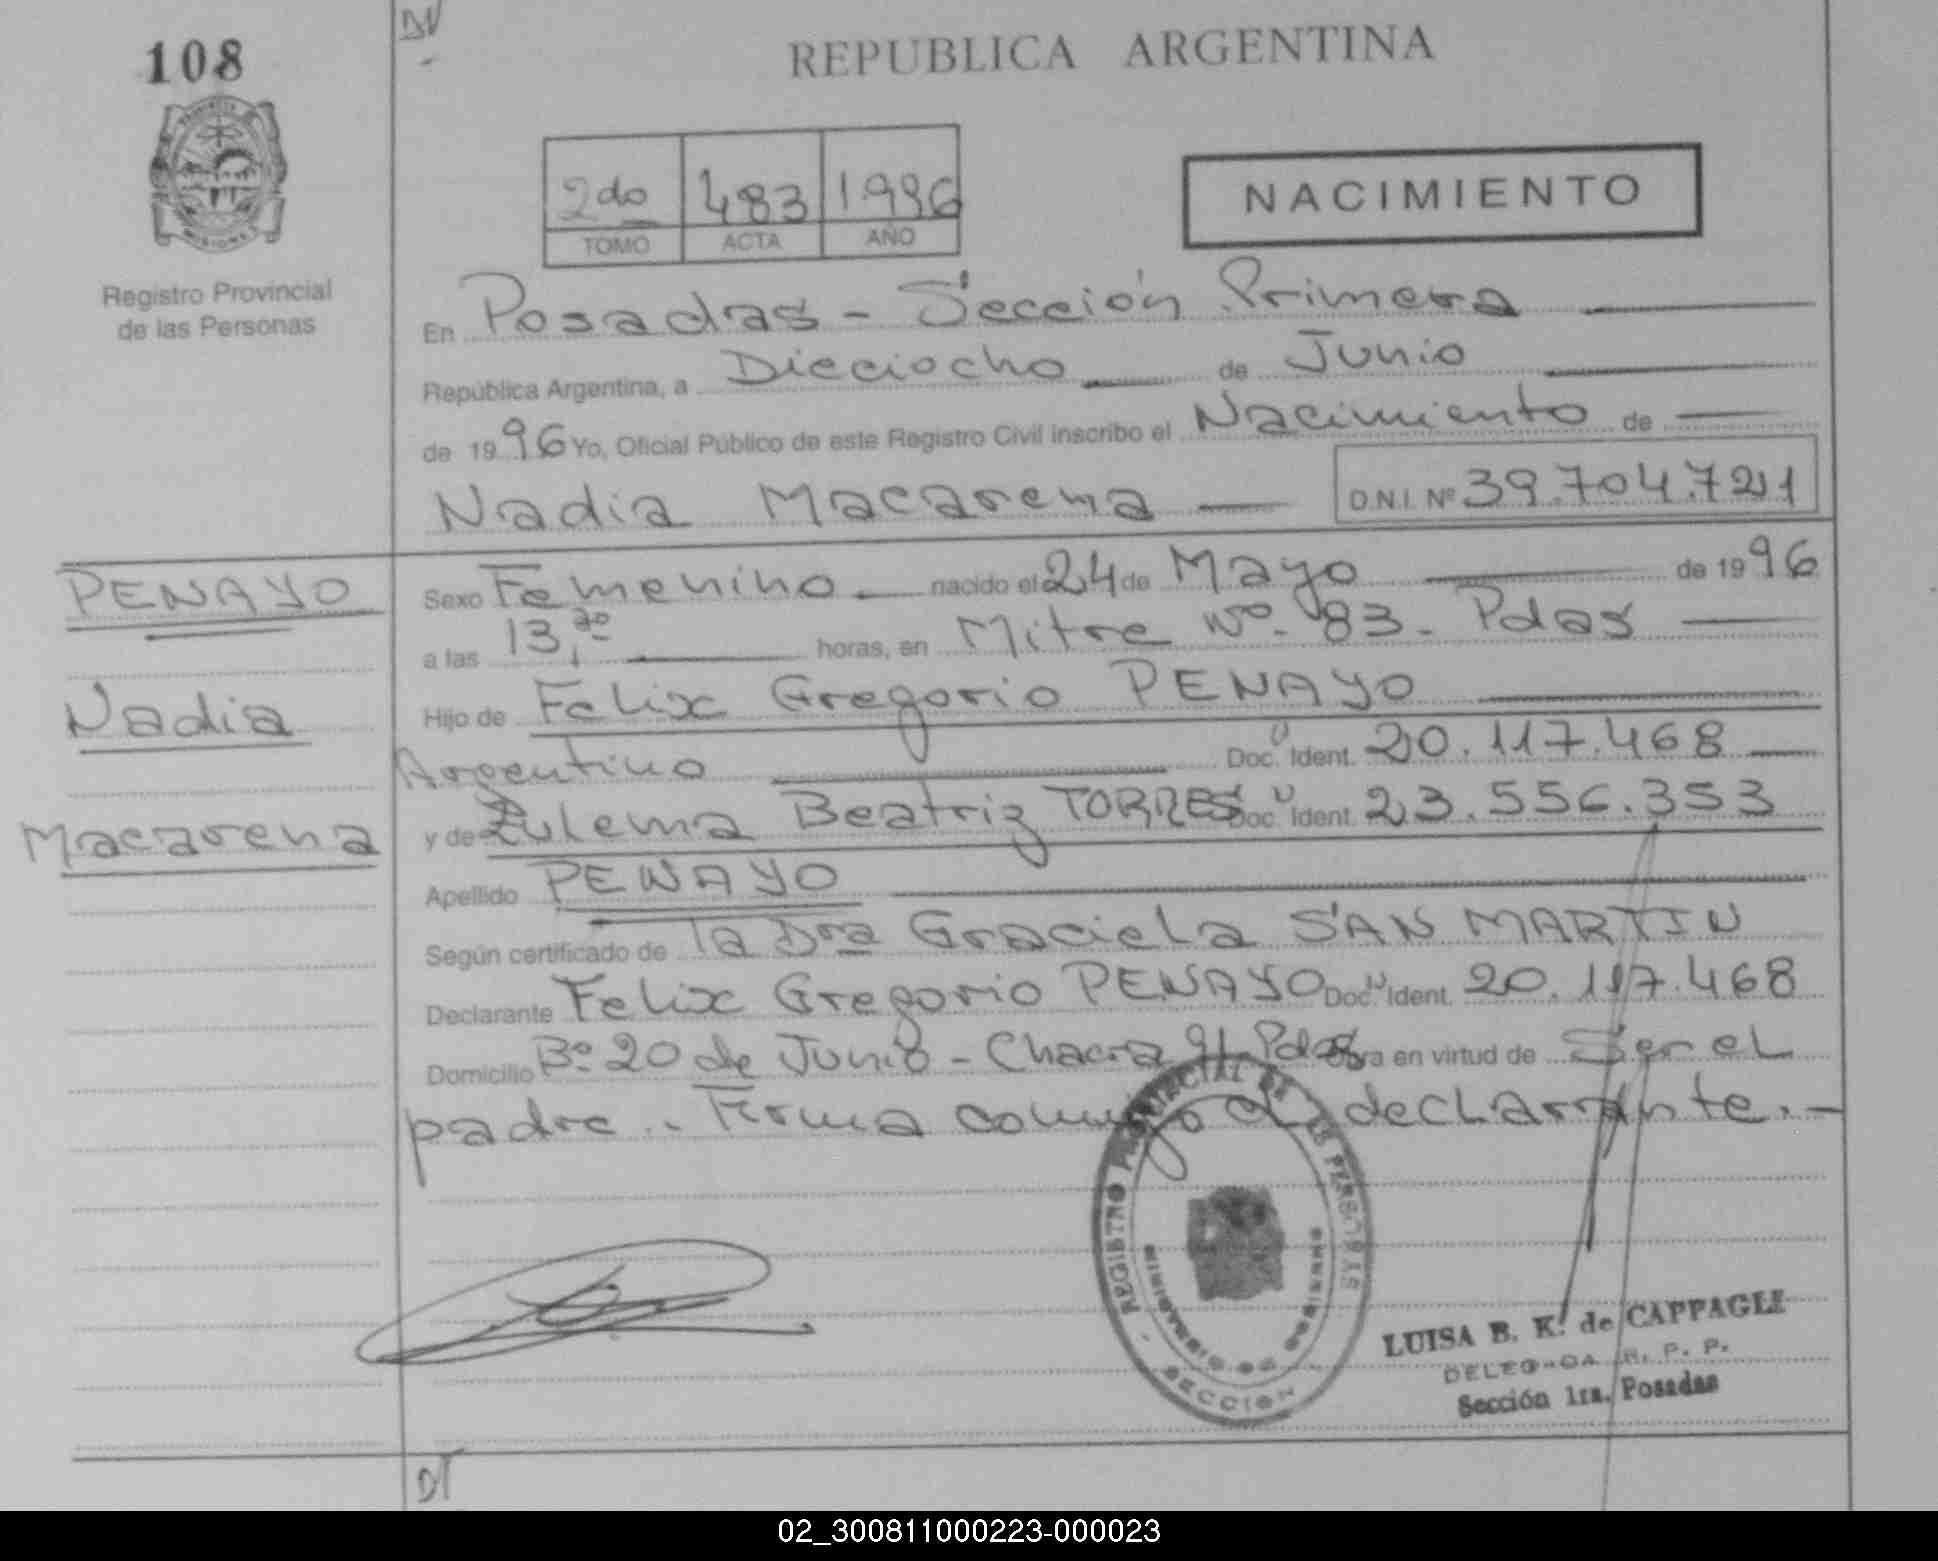 108
REPUBLICA ARGENTINA
2do 483 1996
TOMO ACTA AÑO
NACIMIENTO
MISIONES
Registro Provincial
de las Personas
En Posadas - Sección Primera
República Argentina, a Dieciocho de Junio
de 1996 Yo, Oficial Público de este Registro Civil inscribo el Nacimiento de
Nadia Macarena D.N.I. Nº 39.704.721
PENAYO
Nadia
Macarena
Sexo Femenino nacido el 24 de Mayo de 1996
a las 13,30 horas, en Mitre Nº. 83. Pdas
Hijo de Felix Gregorio PENAYO
Argentino Doc. Ident. 20.117.468
y de Zulema Beatriz TORRES Doc. Ident. 23.556.353
Apellido PENAYO
Según certificado de la Dra Graciela SAN MARTIN
Declarante Felix Gregorio PENAYO Doc. Ident. 20.117.468
Domicilio Bº 20 de Junio - Chacra 91 Pdas Obra en virtud de Ser el
padre.. Firma conmigo el declarante.-
REGISTRO PROVINCIAL DE LAS PERSONAS
MINISTERIO DE GOBIERNO
SECCION
LUISA B. K. de CAPPAGLI
DELEGADA R. P. P.
Sección 1ra. Posadas
02_300811000223-000023